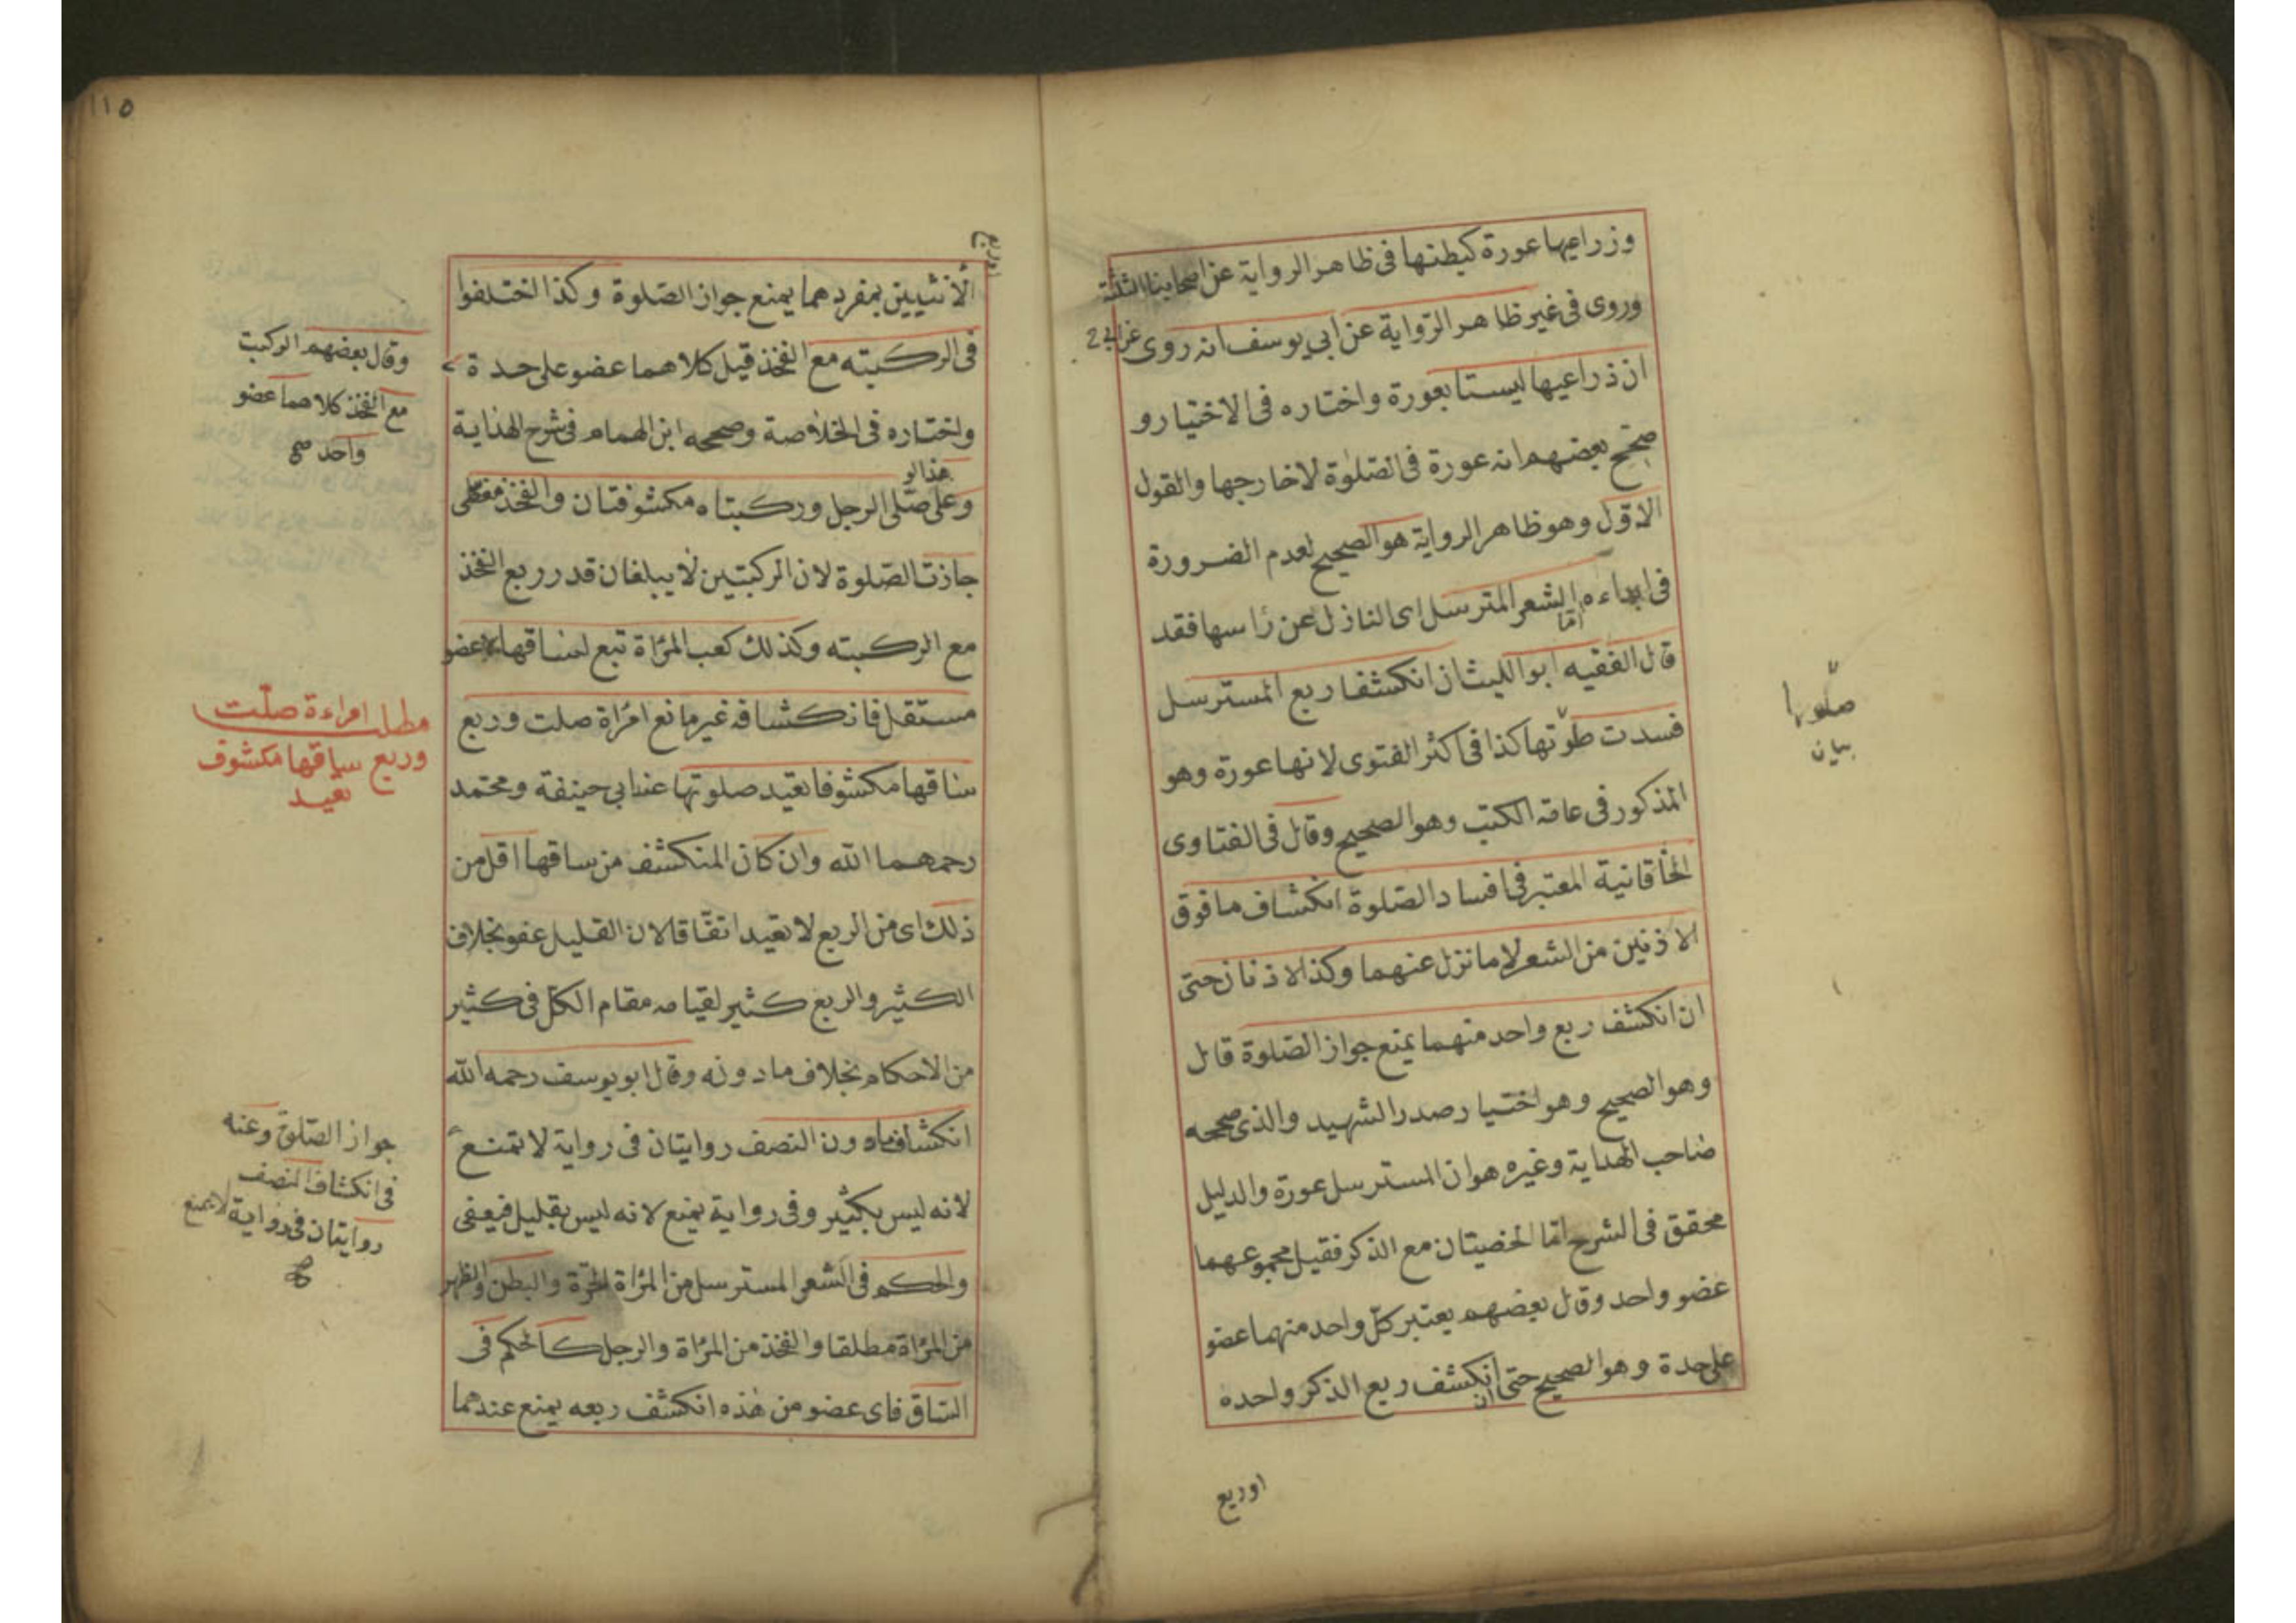 وزراعيها عورة كبطنها فى ظاهر الرواية عن اصحابنا الثلثة
وروى فى غير ظاهر الرواية عن ابي يوسف انه روى عن ابي ح
ان ذراعيها ليستا بعورة واختاره فى الاختيار و
صحح بعضهم انه عورة فى الصلوة لا خارجها والقول
الاوّل وهو ظاهر الرواية هو الصحيح لعدم الضرورة
فى ابداءه امّا الشعر المترسل اى النازل عن رأسها فقد
قال الفقيه ابو الليث ان انكشفا ربع المسترسل
فسدت صلوتها كذا فى اكثر الفتوى لانها عورة وهو
المذكور فى عامة الكتب وهو الصحيح وقال فى الفتاوى
الخاقانية المعتبر فى افساد الصلوة انكشاف ما فوق
الاذنين من الشعر لا ما نزل عنهما وكذا الاذنان حتى
ان انكشف ربع واحد منهما يمنع جواز الصلوة قال
وهو الصحيح وهو اختيار صدر الشهيد والذى صححه
صاحب الهداية وغيره هو ان المسترسل عورة والدليل
محقق فى الشرح امّا الخصيتان مع الذكر فقيل مجموعهما
عضو واحد وقال بعضهم يعتبر كلّ واحد منهما عضو
على حدة وهو الصحيح حتى ان انكشف ربع الذكر واحده
اوربع
صلوتها
بيان
١١٥
اوربع
الأنثيين بمفردهما يمنع جواز الصلوة وكذا اختلفوا
فى الركبته مع الفخذ قيل كلاهما عضو على حدة
واختاره فى الخلاصة وصححه ابن الهمام فى شرح الهداية
وعلى هذا لو صلى الرجل وركبتاه مكشوفتان والفخذ مغطى
جازت الصلوة لان الركبتين لا يبلغان قدر ربع الفخذ
مع الركبته وكذلك كعب المرأة تبع لساقها لا عضو
مستقل فانكشافه غير مانع امرأة صلت وربع
ساقها مكشوفا تعيد صلوتها عند ابى حنيفة ومحمد
رحمهما الله وان كان المنكشف من ساقها اقل من
ذلك اى من الربع لا تعيد اتفاقا لان القليل عفو بخلاف
الكثير والربع كثير لقيامه مقام الكل فى كثير
من الاحكام بخلاف ما دونه وقال ابو يوسف رحمه الله
انكشاف ما دون النصف روايتان فى رواية لا تمنع
لانه ليس بكثير وفى رواية يمنع لانه ليس بقليل فيعفى
والحكم فى الشعر المسترسل من المرأة الحرّة والبطن والظهر
من المرأة مطلقا والفخذ من المرأة والرجل كالحكم فى
الساق فاى عضو من هذه انكشف ربعه يمنع عندهما
وقال بعضهم الركبت
مع الفخذ كلاهما عضو
واحد صح
مطلب امراءة صلّت
وربع ساقها مكشوف
تعيد
جواز الصلوة وعنه
فى انكشاف النصف
روايتان فى رواية لا يمنع
صح